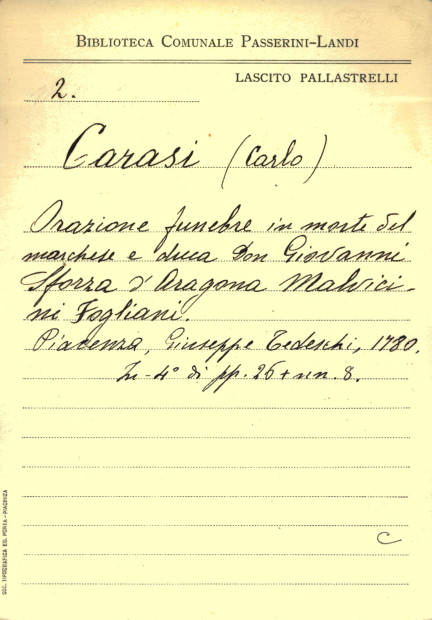 BIBLIOTECA COMUNALE PASSERINI-LANDI
LASCITO PALLASTRELLI
2.
Carasi (Carlo)
Orazione funebre in morte del
marchese e duca Don Giovanni
Sforza d'Aragona Malvici-
ni Fogliani.
Piacenza, Giuseppe Tedeschi, 1780.
In-4° di pp. 26 + nn. 8.
C
SOC. TIPOGRAFICA ED. PORTA - PIACENZA